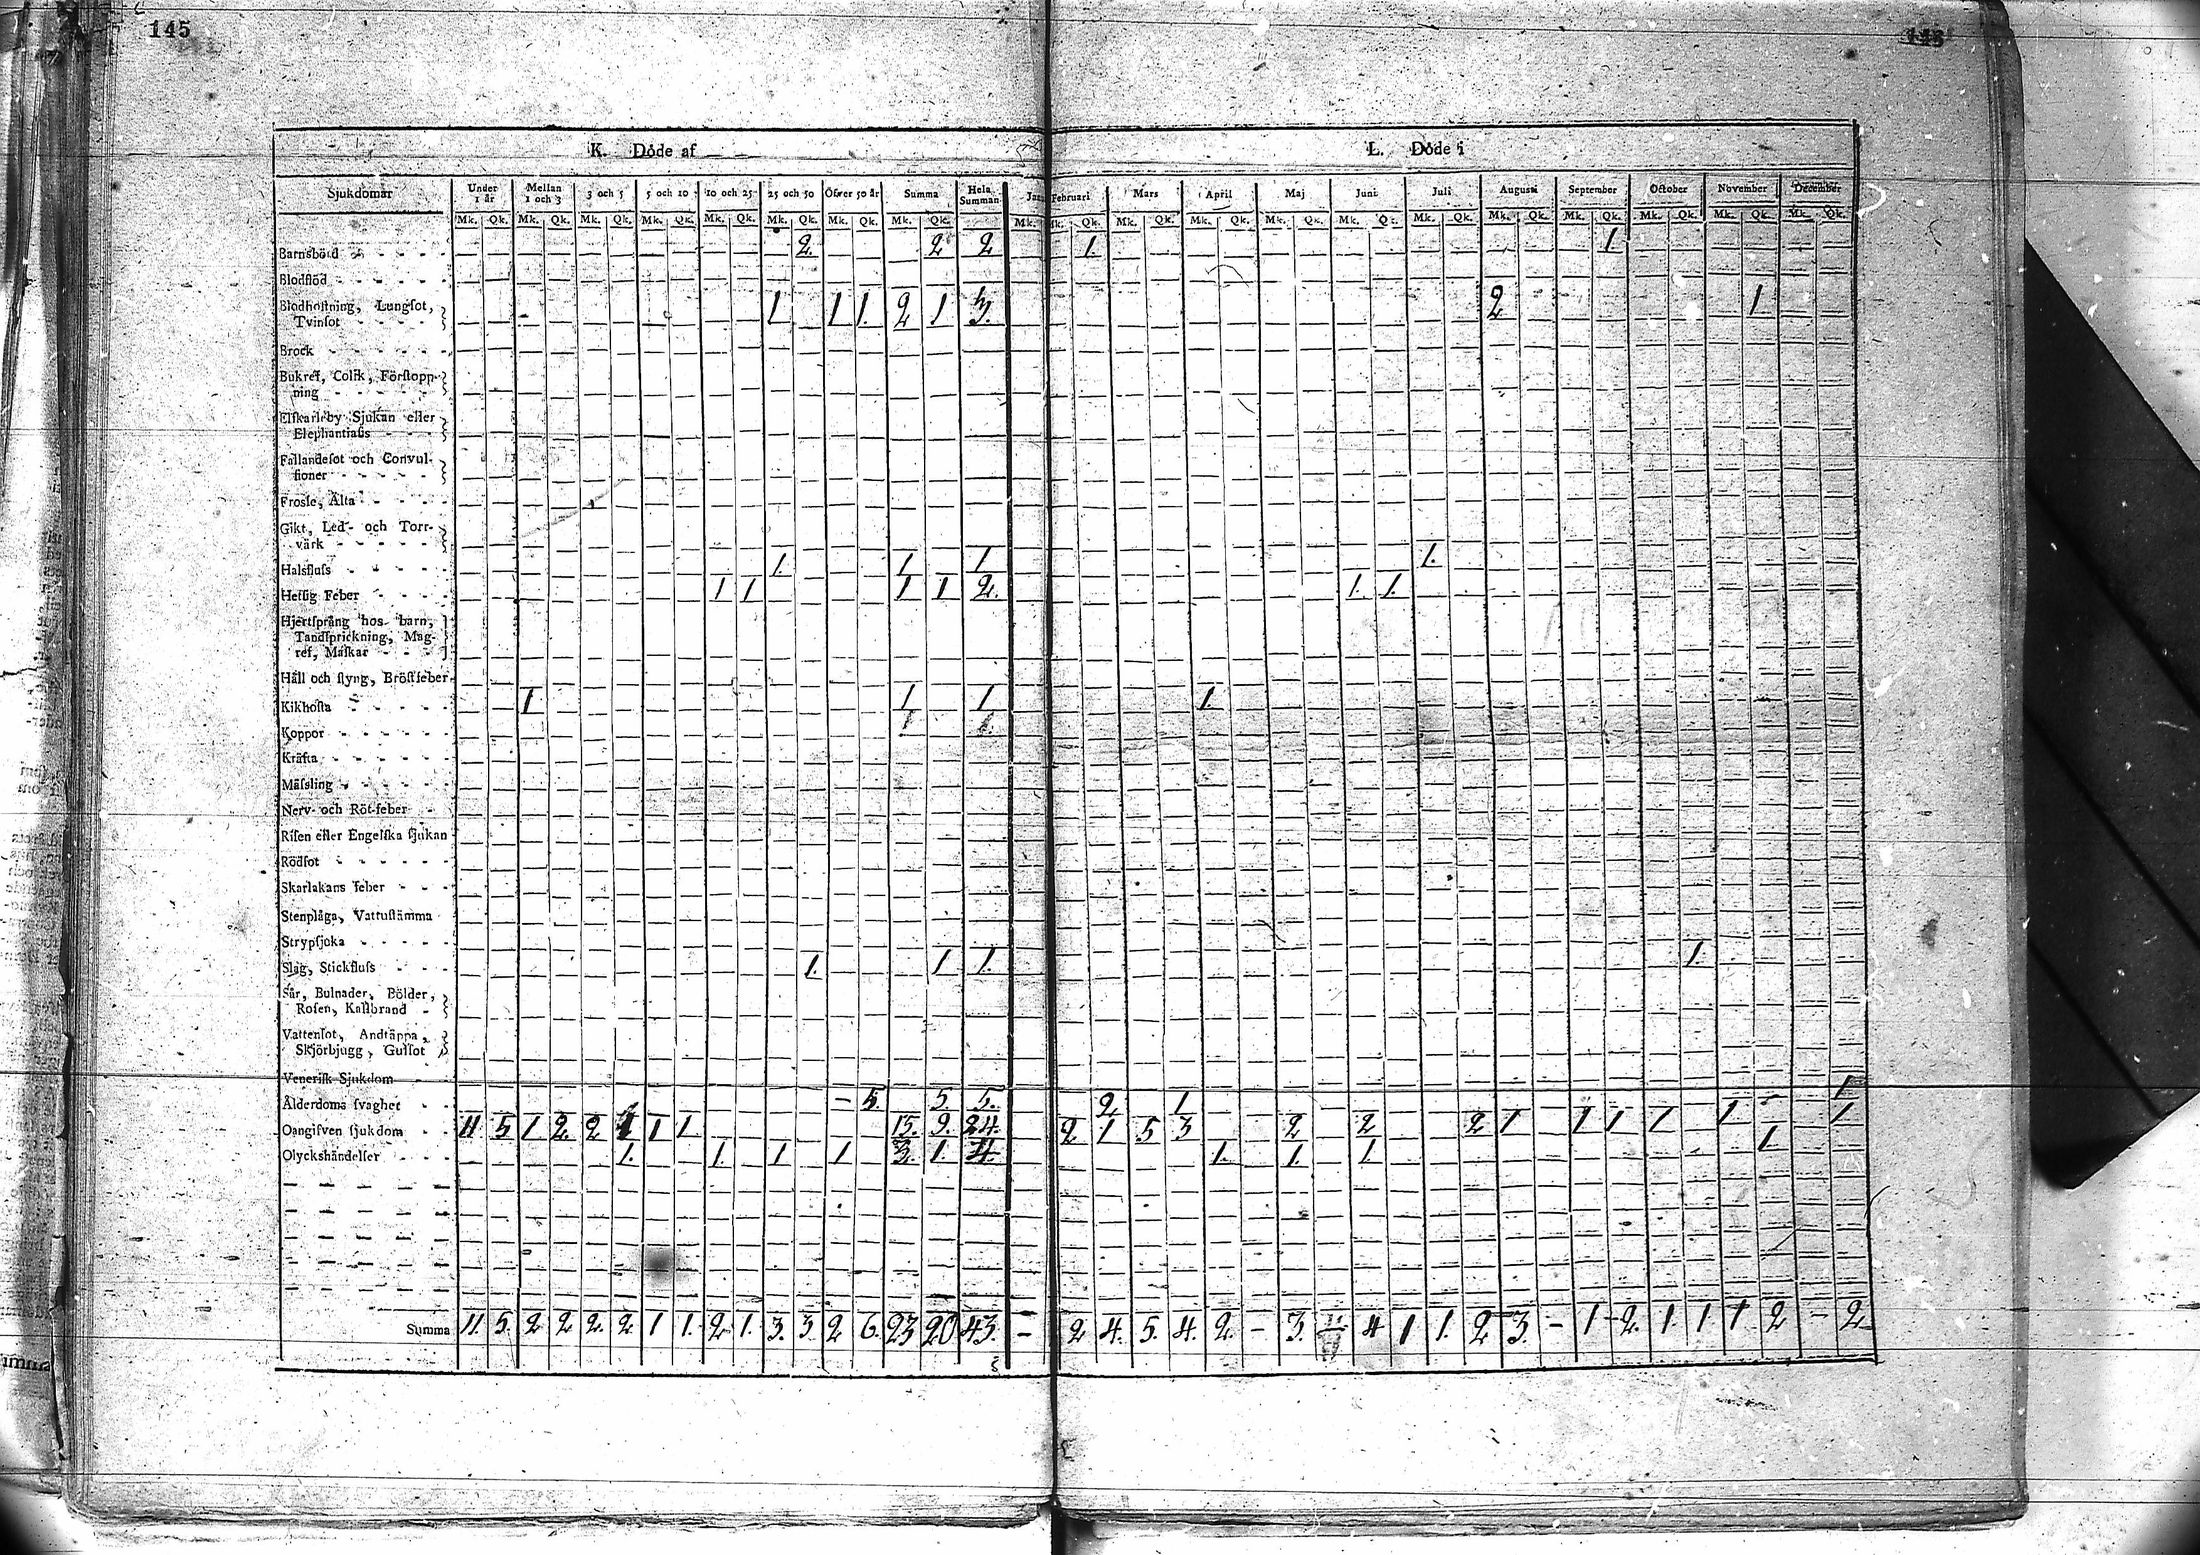 145
K. Döde af L. Döde i
Sjukdomar Under 1 år Mellan 1 och 3 3 och 5 5 och 10 10 och 25 25 och 50 Öfver 50 år Summa Hela Summan Februari Mars April Maj Juni Juli Augusti September October November December
Mk. Qk. Mk. Qk. Mk. Qk. Mk. Qk. Mk. Qk. Mk. Qk. Mk. Qk. Mk. Qk. Mk. Mk. Qk. Mk. Qk. Mk. Qk. Mk. Qk. Mk. Qk. Mk. Qk. Mk. Qk. Mk. Qk. Mk. Qk. Mk. Qk. Mk. Qk.
Barnsbörd 2. 2 2 1. 1
Blodflöd
Blodhostning, Lungsot,
Tvinsot 1 1 1. 2 1 3. 2 1.
Brock
Bukref, Colik, Förstopp-
ning
Elfkarleby Sjukan eller
Elephantiasis
Fallandesot och Convul-
sioner
Frossa, Älta
Gikt, Led- och Torr-
värk
Halsfluss 1. 1 1 1.
Hetsig Feber 1 1 1 1 2. 1. 1.
Hjertsprång hos barn,
Tandsprickning, Mag-
ref, Maskar
Håll och styng, Bröstfeber
Kikhosta 1 1 1 1.
Koppor
Kräfta
Mässling
Nerv- och Röt-feber
Risen eller Engelska sjukan
Rödsot
Skarlakans feber
Stenplåga, Vattustämma
Strypsjuka
Slag, Stickfluss 1. 1 1. 1.
Sår, Bulnader, Bölder,
Rosen, Kallbrand
Vattensot, Andtäppa,
Skjörbjugg, Gulsot
Venerisk Sjukdom
Ålderdoms svaghet 5. 5 5. 2 1 1
Oangifven sjukdom 11 5 1 2. 2 1 1 1. 15. 9. 24. 2 1 5 3 2 2 2 1 1 1 1 1 1
Olyckshändelser 1. 1. 1 1 3. 1. 4. 1. 1. 1. 1
Summa 11. 5. 2 2 2. 2. 1 1. 2 1. 3. 3. 2 6. 23 20 43. - 2 4. 5. 4. 2. - 3. 4 1 1. 2 3. - 1 - 2. 1. 1. 1 2 - 2